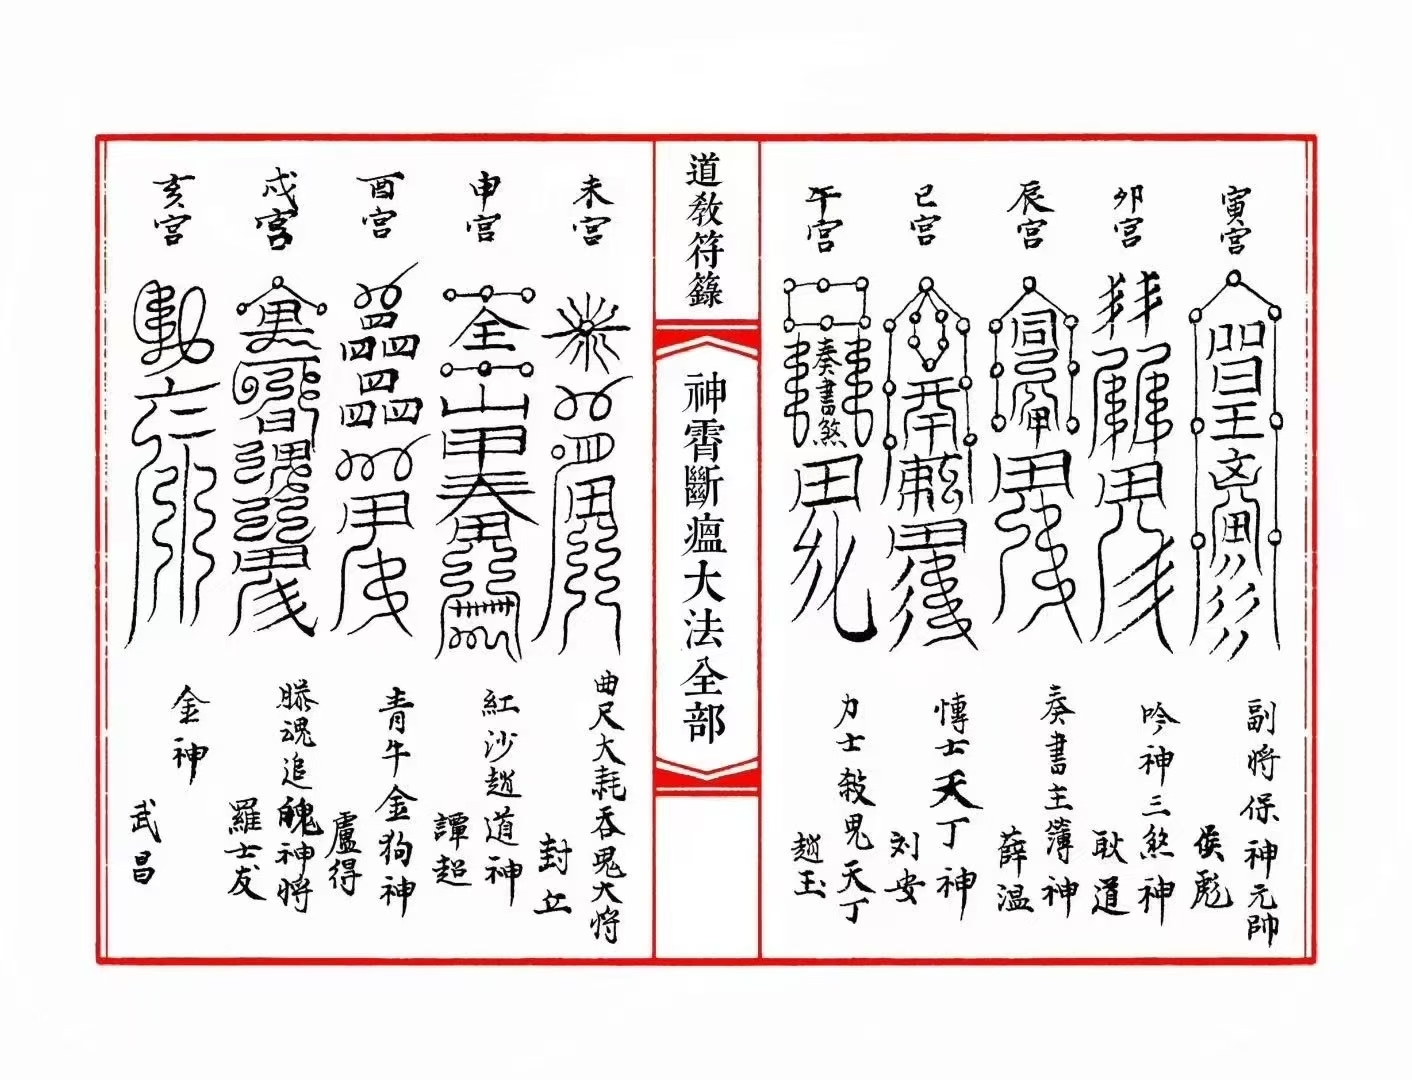 寅宮
副將保神元帥
侯彪
卯宮
吟神三煞神
耿道
辰宮
奏書主簿神
薛温
巳宮
慱士天丁神
刘安
午宮
奏書煞
力士殺鬼天丁
趙玉
道教符籙
神霄斷瘟大法全部
未宮
曲尺大耗吞鬼大將
封立
申宮
紅沙趙道神
譚超
酉宮
青牛金狗神
盧得
戍宮
滕魂追魄神將
羅士友
亥宮
金神
武昌